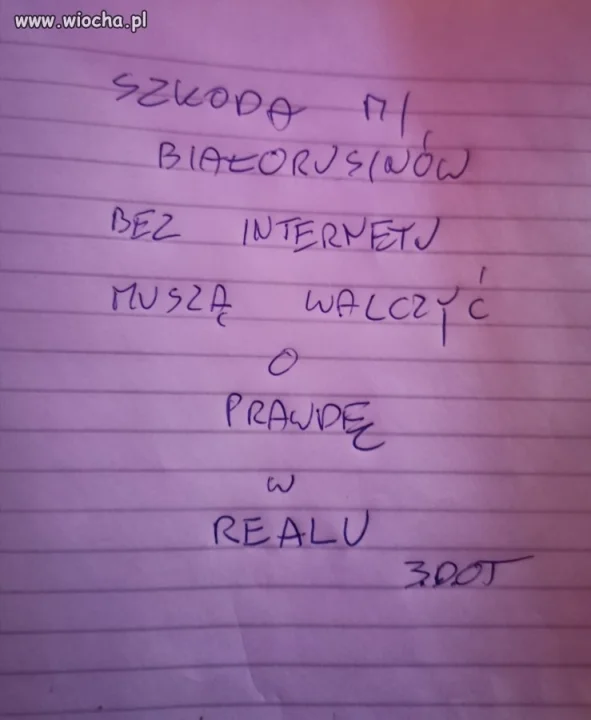 www.wiocha.pl
SZKODA MI
BIAŁORUSINÓW
BEZ INTERNETU
MUSZĄ WALCZYĆ
O
PRAWDĘ
W
REALU
3.DOT